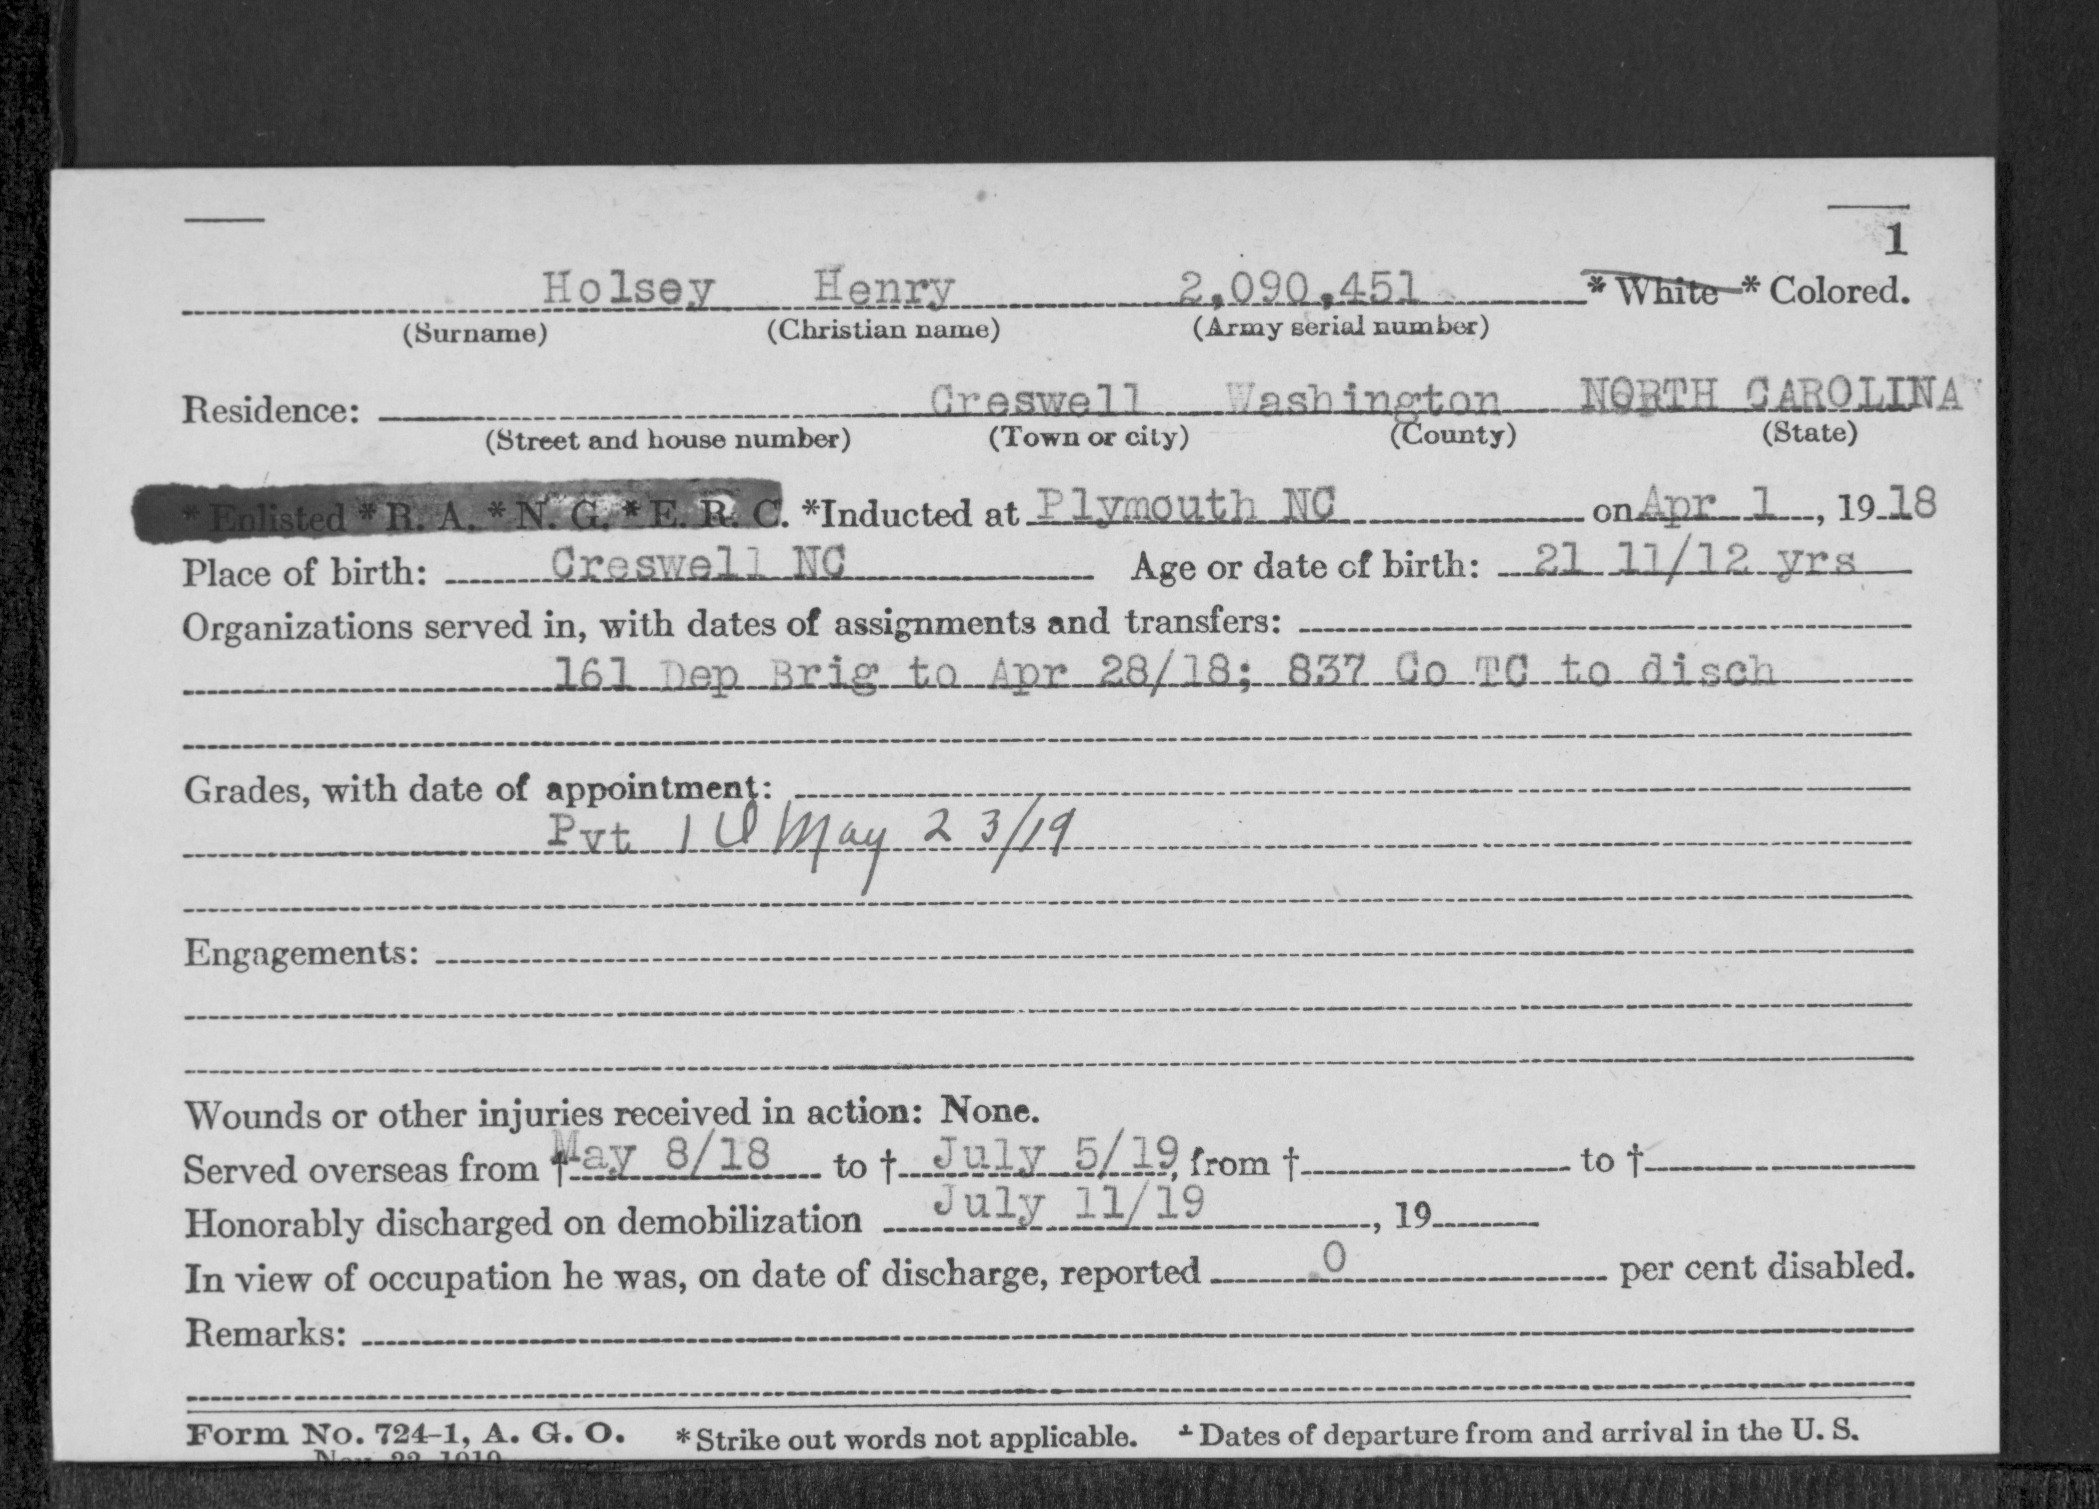 1
Holsey Henry 2,090,451 * White * Colored.
(Surname) (Christian name) (Army serial number)
Residence: Creswell Washington NORTH CAROLINA
(Street and house number) (Town or city) (County) (State)
* Enlisted * R. A. * N. G. * E. R. C. *Inducted at Plymouth NC on Apr 1, 19 18
Place of birth: Creswell NC Age or date of birth: 21 11/12 yrs
Organizations served in, with dates of assignments and transfers:
161 Dep Brig to Apr 28/18; 837 Co TC to disch
Grades, with date of appointment:
Pvt 1 Cl May 23/19
Engagements:
Wounds or other injuries received in action: None.
Served overseas from † May 8/18 to † July 5/19, from † to †
Honorably discharged on demobilization July 11/19, 19
In view of occupation he was, on date of discharge, reported 0 per cent disabled.
Remarks:
Form No. 724-1, A. G. O. *Strike out words not applicable. † Dates of departure from and arrival in the U. S.